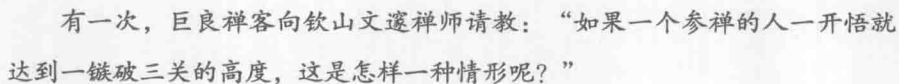 有一次，巨良禅客向钦山文邃禅师请教：“如果一个参禅的人一开悟就
达到一镞破三关的高度，这是怎样一种情形呢？”